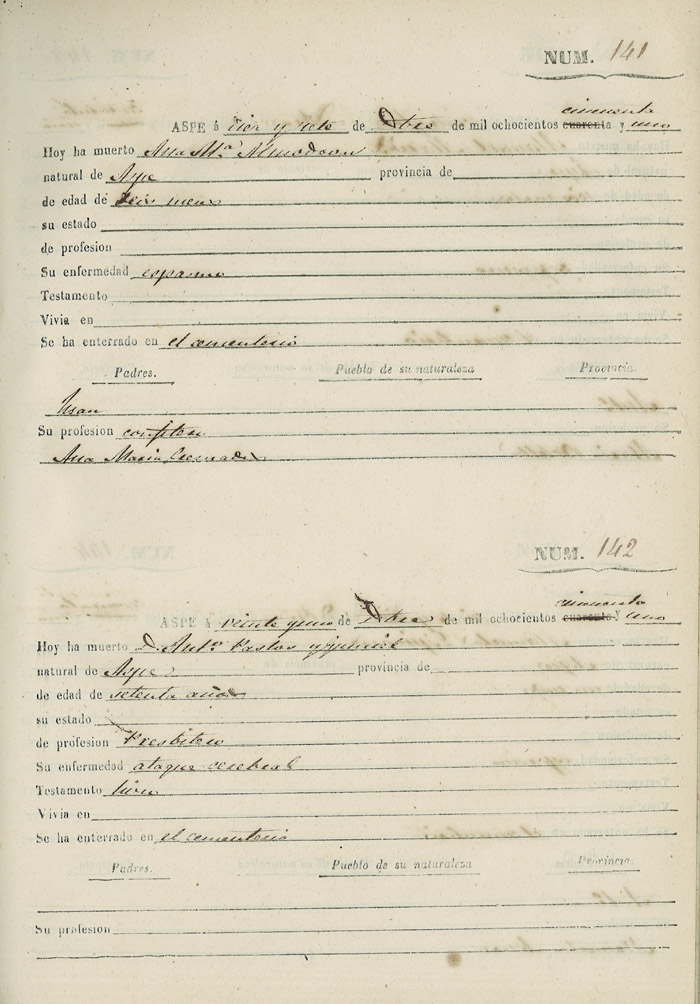 NUM. 141
cincuenta
ASPE á diez y siete de Dbre de mil ochocientos cuarenta y uno
Hoy ha muerto Ana Mª Almodovar
natural de Aspe provincia de
de edad de seis meses
su estado
de profesion
Su enfermedad espasmo
Testamento
Vivia en
Se ha enterrado en el cementerio
Padres. Pueblo de su naturaleza Provincia.
Juan
Su profesion confitero
Ana Maria
NUM. 142
cincuenta
ASPE á veinte y uno de Dbre de mil ochocientos cuarenta y uno
Hoy ha muerto D. Antº Pastor y
natural de Aspe
provincia de
de edad de setenta años
su estado
de profesion Presbitero
Su enfermedad ataque cerebral
Testamento hizo
Vivia en
Se ha enterrado en el cementerio
Padres. Pueblo de su naturaleza Provincia.
Su profesion